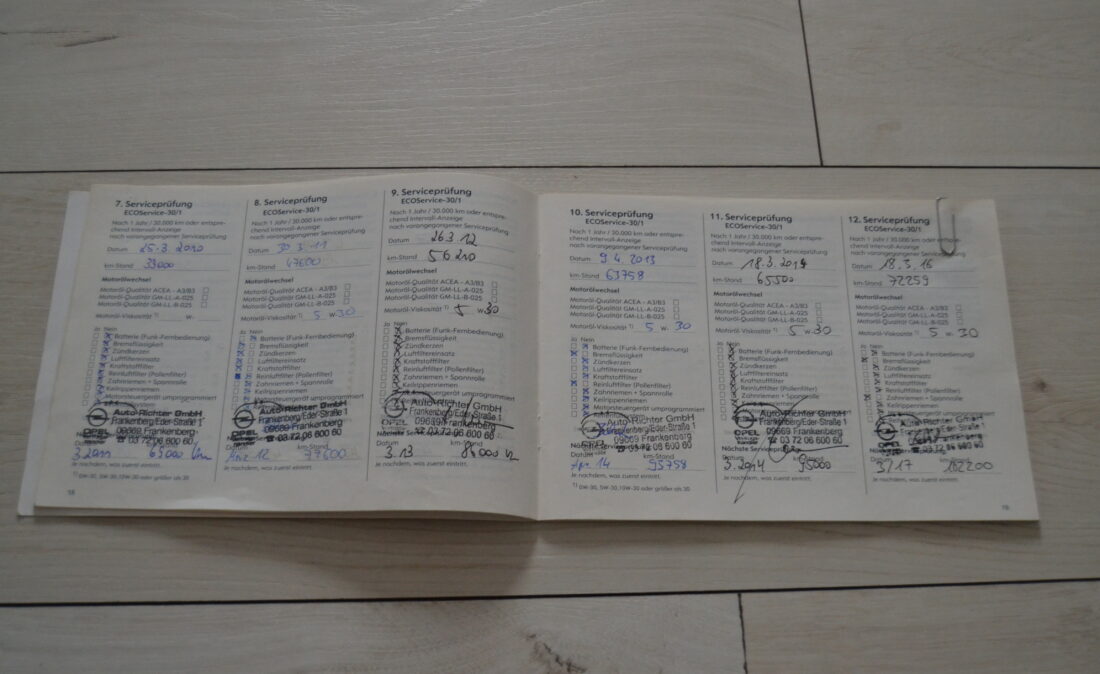 7. Serviceprüfung
ECOService-30/1
Nach 1 Jahr / 30.000 km oder entspre-
chend Intervall-Anzeige
nach vorangegangener Serviceprüfung
Datum 25.3.2010
km-Stand 33000
Motorölwechsel
Motoröl-Qualität ACEA - A3/B3
Motoröl-Qualität GM-LL-A-025
Motoröl-Qualität GM-LL-B-025
Motoröl-Viskosität 1) W-
Ja Nein
Batterie (Funk-Fernbedienung)
Bremsflüssigkeit
Zündkerzen
Luftfiltereinsatz
Kraftstofffilter
Reinluftfilter (Pollenfilter)
Zahnriemen + Spannrolle
Keilrippenriemen
Motorsteuergerät umprogrammiert
Auto-Richter GmbH
Frankenberg/Eder-Straße 1
09669 Frankenberg
OPEL
☎ 03 72 06 600 60
3.2011 63000 km
Je nachdem, was zuerst eintritt.
1) 0W-30, 5W-30, 10W-30 oder größer als 30
18
8. Serviceprüfung
ECOService-30/1
Nach 1 Jahr / 30.000 km oder entspre-
chend Intervall-Anzeige
nach vorangegangener Serviceprüfung
Datum 30.3.11
km-Stand
Motorölwechsel
Motoröl-Qualität ACEA - A3/B3
Motoröl-Qualität GM-LL-A-025
Motoröl-Qualität GM-LL-B-025
Motoröl-Viskosität 1) 5 W-30
Ja Nein
Batterie (Funk-Fernbedienung)
Bremsflüssigkeit
Zündkerzen
Luftfiltereinsatz
Kraftstofffilter
Reinluftfilter (Pollenfilter)
Zahnriemen + Spannrolle
Keilrippenriemen
Motorsteuergerät umprogrammiert
Auto-Richter GmbH
Frankenberg/Eder-Straße 1
09669 Frankenberg
OPEL
☎ 03 72 06 600 60
km-Stand
12
Je nachdem, was zuerst eintritt.
9. Serviceprüfung
ECOService-30/1
Nach 1 Jahr / 30.000 km oder entspre-
chend Intervall-Anzeige
nach vorangegangener Serviceprüfung
Datum 26.3.12
km-Stand 56210
Motorölwechsel
Motoröl-Qualität ACEA - A3/B3
Motoröl-Qualität GM-LL-A-025
Motoröl-Qualität GM-LL-B-025
Motoröl-Viskosität 1) 5 W-30
Ja Nein
Batterie (Funk-Fernbedienung)
Bremsflüssigkeit
Zündkerzen
Luftfiltereinsatz
Kraftstofffilter
Reinluftfilter (Pollenfilter)
Zahnriemen + Spannrolle
Keilrippenriemen
Auto-Richter GmbH
Frankenberg/Eder-Straße 1
09669 Frankenberg
OPEL
☎ 03 72 06 600 60
Datum km-Stand
3.13
Je nachdem, was zuerst eintritt.
10. Serviceprüfung
ECOService-30/1
Nach 1 Jahr / 30.000 km oder entspre-
chend Intervall-Anzeige
nach vorangegangener Serviceprüfung
Datum 9.4.2013
km-Stand 63758
Motorölwechsel
Motoröl-Qualität ACEA - A3/B3
Motoröl-Qualität GM-LL-A-025
Motoröl-Qualität GM-LL-B-025
Motoröl-Viskosität 1) 5 W-30
Ja Nein
Batterie (Funk-Fernbedienung)
Bremsflüssigkeit
Zündkerzen
Luftfiltereinsatz
Kraftstofffilter
Reinluftfilter (Pollenfilter)
Zahnriemen + Spannrolle
Keilrippenriemen
Motorsteuergerät umprogrammiert
Auto-Richter GmbH
Frankenberg/Eder-Straße 1
09669 Frankenberg
☎ 03 72 06 600 60
km-Stand
Apr. 14 93758
Je nachdem, was zuerst eintritt.
1) 0W-30, 5W-30, 10W-30 oder größer als 30
11. Serviceprüfung
ECOService-30/1
Nach 1 Jahr / 30.000 km oder entspre-
chend Intervall-Anzeige
nach vorangegangener Serviceprüfung
Datum 18.3.2014
km-Stand 65500
Motorölwechsel
Motoröl-Qualität ACEA - A3/B3
Motoröl-Qualität GM-LL-A-025
Motoröl-Qualität GM-LL-B-025
Motoröl-Viskosität 1) 5 W-30
Ja Nein
Batterie (Funk-Fernbedienung)
Bremsflüssigkeit
Zündkerzen
Luftfiltereinsatz
Kraftstofffilter
Reinluftfilter (Pollenfilter)
Zahnriemen + Spannrolle
Keilrippenriemen
Motorsteuergerät umprogrammiert
Auto-Richter GmbH
Frankenberg/Eder-Straße 1
09669 Frankenberg
OPEL
☎ 03 72 06 600 60
Nächste Serviceprüfung
Datum km-Stand
95000
Je nachdem, was zuerst eintritt.
12. Serviceprüfung
ECOService-30/1
Nach 1 Jahr / 30.000 km oder entspre-
chend Intervall-Anzeige
nach vorangegangener Serviceprüfung
Datum 18.3.16
km-Stand 72259
Motorölwechsel
Motoröl-Qualität ACEA - A3/B3
Motoröl-Qualität GM-LL-A-025
Motoröl-Qualität GM-LL-B-025
Motoröl-Viskosität 1) 5 W-30
Ja Nein
Batterie (Funk-Fernbedienung)
Bremsflüssigkeit
Zündkerzen
Luftfiltereinsatz
Kraftstofffilter
Reinluftfilter (Pollenfilter)
Zahnriemen + Spannrolle
Keilrippenriemen
OPEL
Je nachdem, was zuerst eintritt.
19